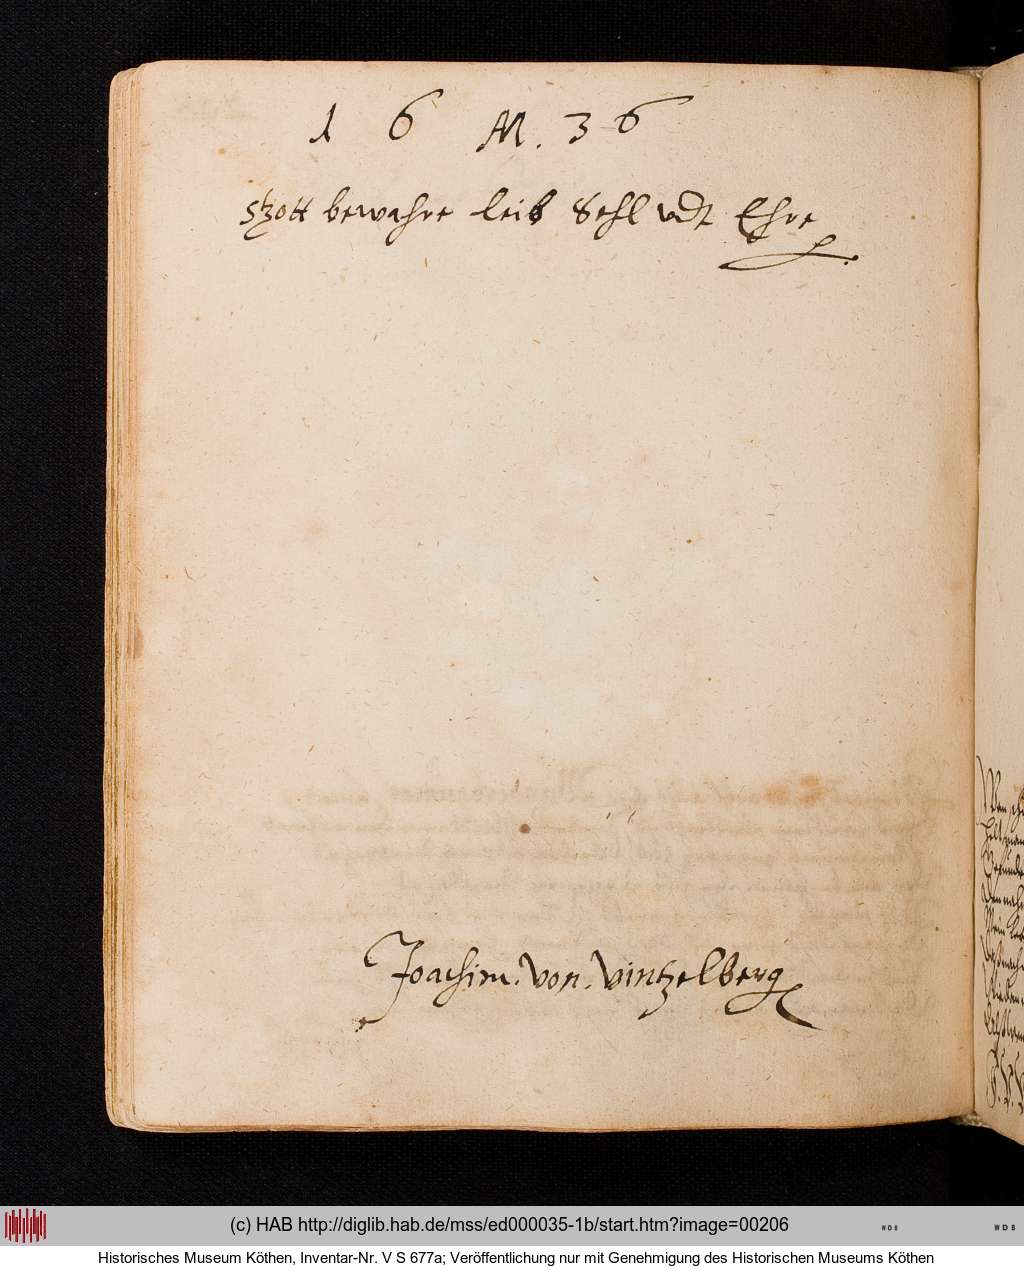 1 6 M. 36
Gott bewahre leib Sehl vdt Ehre
Joachim. von. vintzelberg
(c) HAB http://diglib.hab.de/mss/ed000035-1b/start.htm?image=00206
WDB
WDB
Historisches Museum Köthen, Inventar-Nr. V S 677a; Veröffentlichung nur mit Genehmigung des Historischen Museums Köthen